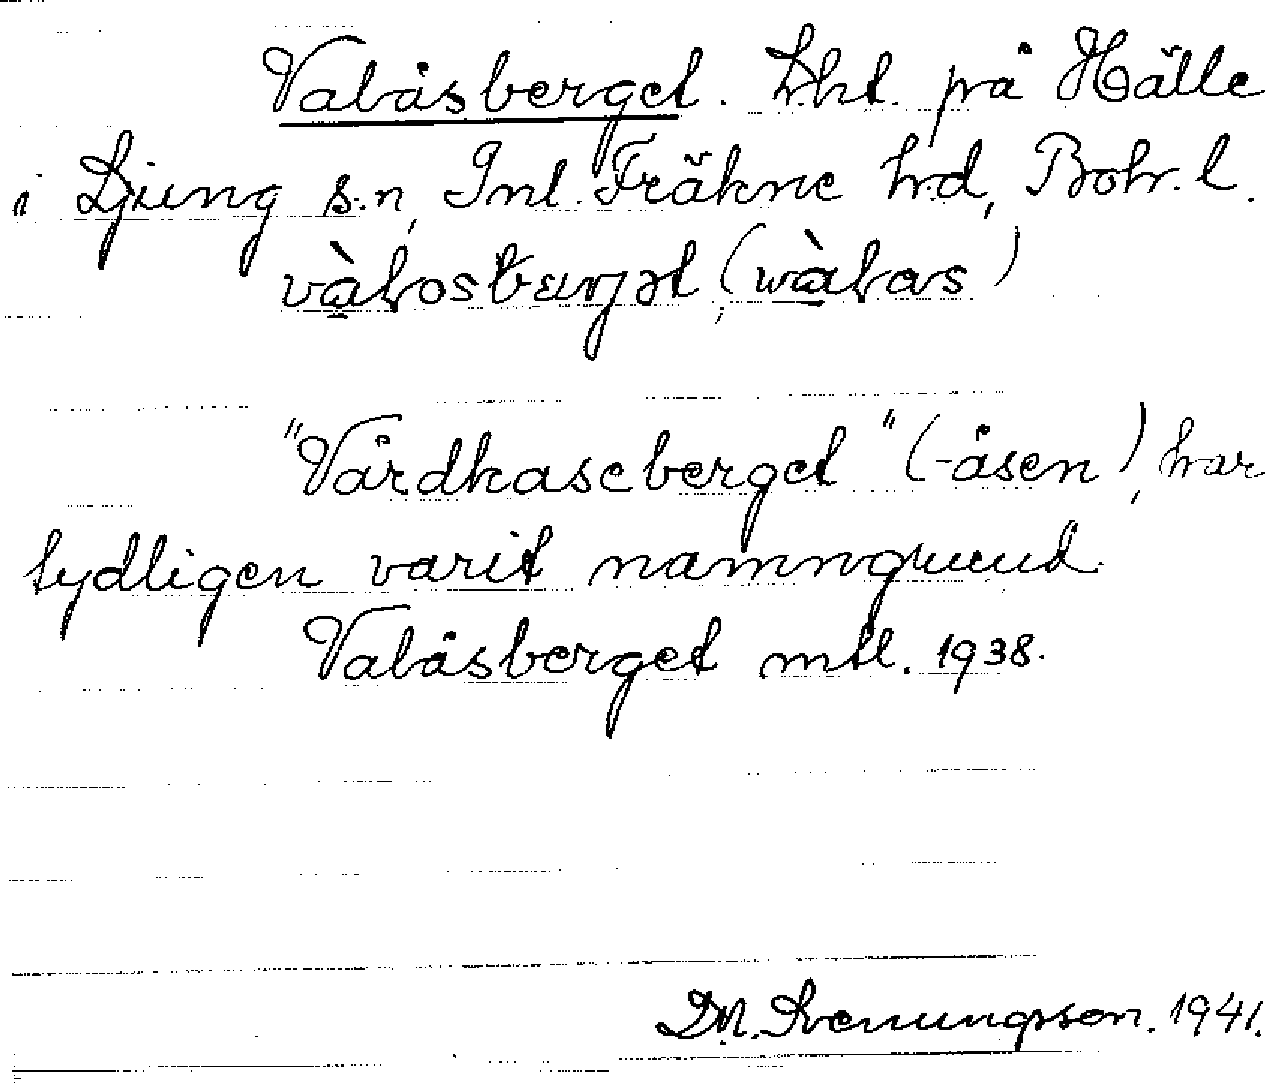 Vabåsberget. Lht. på Hälle
i Ljung s.n, Inl. Fräkne hrd, Bohr. l.
vàbosbærjət, (wàbas)
"Vårdkaseberget" (-åsen), har
tydligen varit namngrund
Vabåsberget mtl. 1938.
D.N. Svenungsson. 1941.